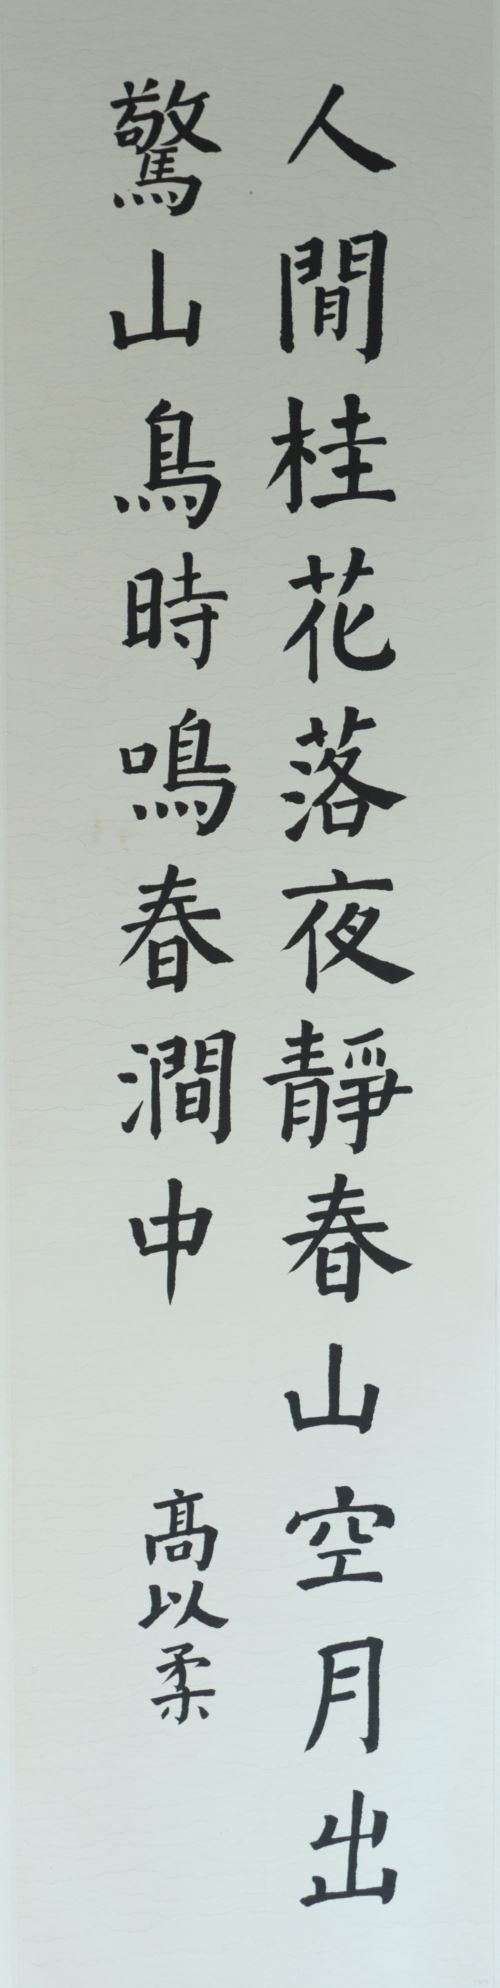 人間桂花落夜靜春山空月出
驚山鳥時鳴春澗中
高以柔